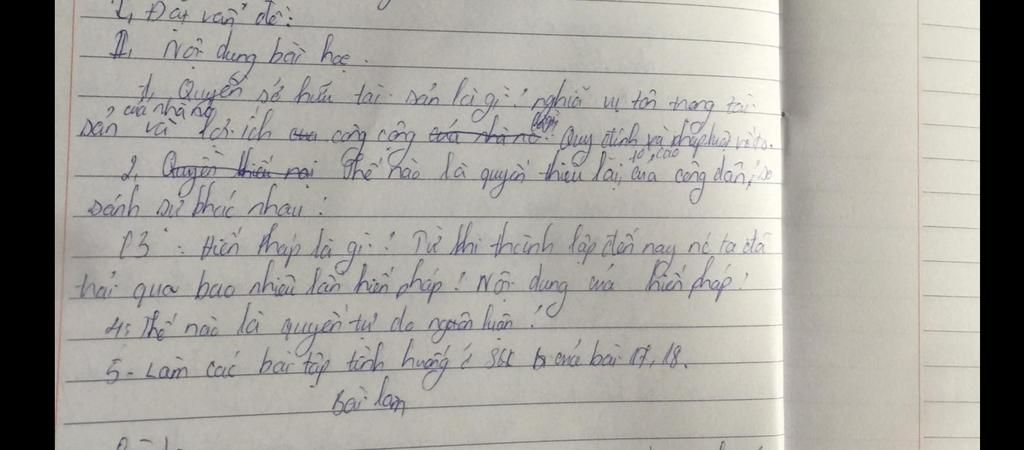 I, Đặt vấn đề:
II, Nội dung bài học.
1, Quyền sở hữu tài sản là gì? nghĩa vụ tôn trọng tài
của nhà nc
sản và lợi ích của công cộng của nhà nc? Quy định và pháp luật
2, Quyền khiếu nại Thế nào là quyền khiếu lại, tố cáo của công dân, so
sánh sự khác nhau?
3: Hiến Pháp là gì? Từ khi thành lập đến nay nc ta đã
trải qua bao nhiêu lần hiến pháp? Nội dung của hiến pháp?
4: Thế nào là quyền tự do ngôn luận?
5 - Làm các bài tập tình huống ở SGK của bài 17, 18.
Bài làm